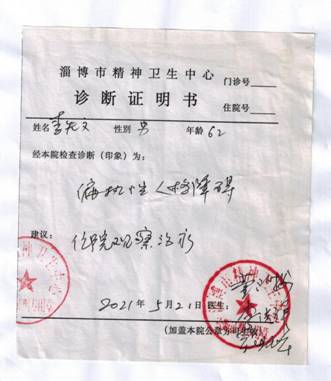 淄博市精神卫生中心
门诊号
诊断证明书
住院号
姓名 李 性别 男 年龄 62
经本院检查诊断（印象）为：
偏执性人格障碍
建议：
住院观察治疗
2021年5月21日 医生：
（加盖本院公章方可生效）